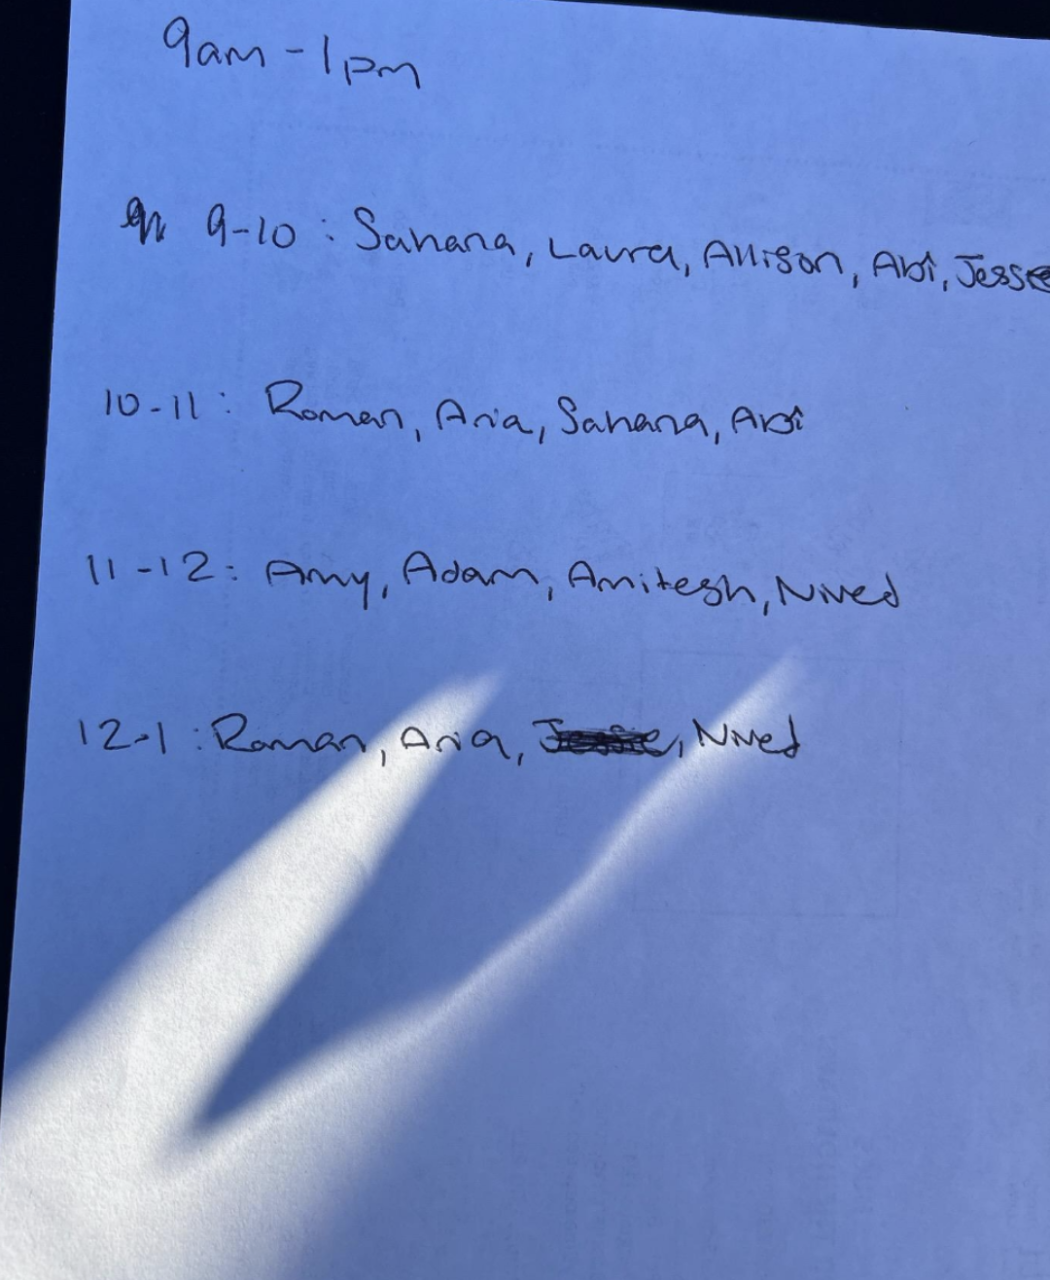 9am - 1pm
9-10 : Sahana, Laura, Allison, Abi, Jesse
10-11 : Roman, Aria, Sahana, Abi
11-12 : Amy, Adam, Amitesh, Nived
12-1 : Roman, Aria, Nived